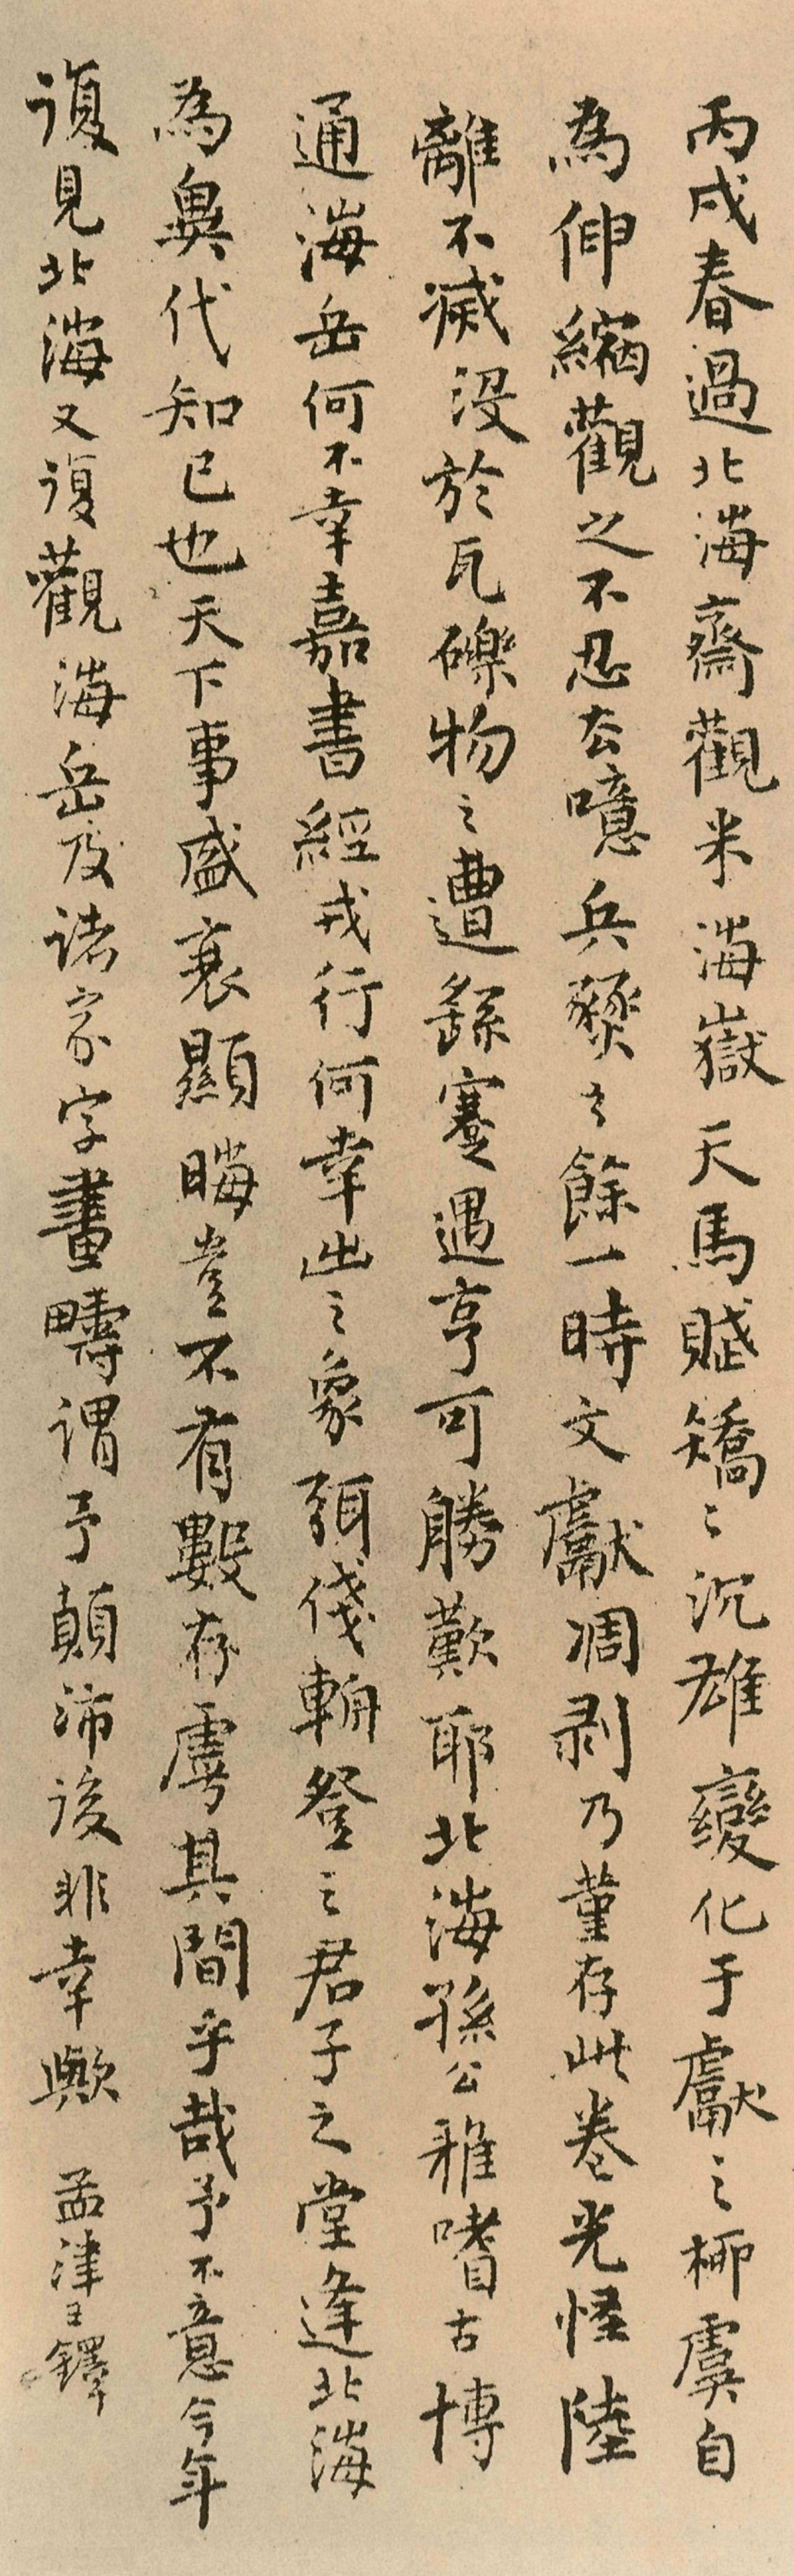 丙戌春過北海齋觀米海嶽天馬賦矯〻沉雄變化于獻之柳虞自
為伸縮觀之不忍去噫兵燹之餘一時文獻凋剥乃菫存此卷光怪陸
離不滅没於瓦礫物之遭繇蹇遇亨可勝歎耶北海孫公雅嗜古博
通海岳何不幸嘉書經戎行何幸出之象弭俴輈登之君子之堂逢北海
為異代知已也天下事盛衰顯晦豈不有數存虖其間乎哉予不意今年
復見北海又復觀海岳及諸家字畫疇謂予顛沛後非幸歟 孟津王鐸